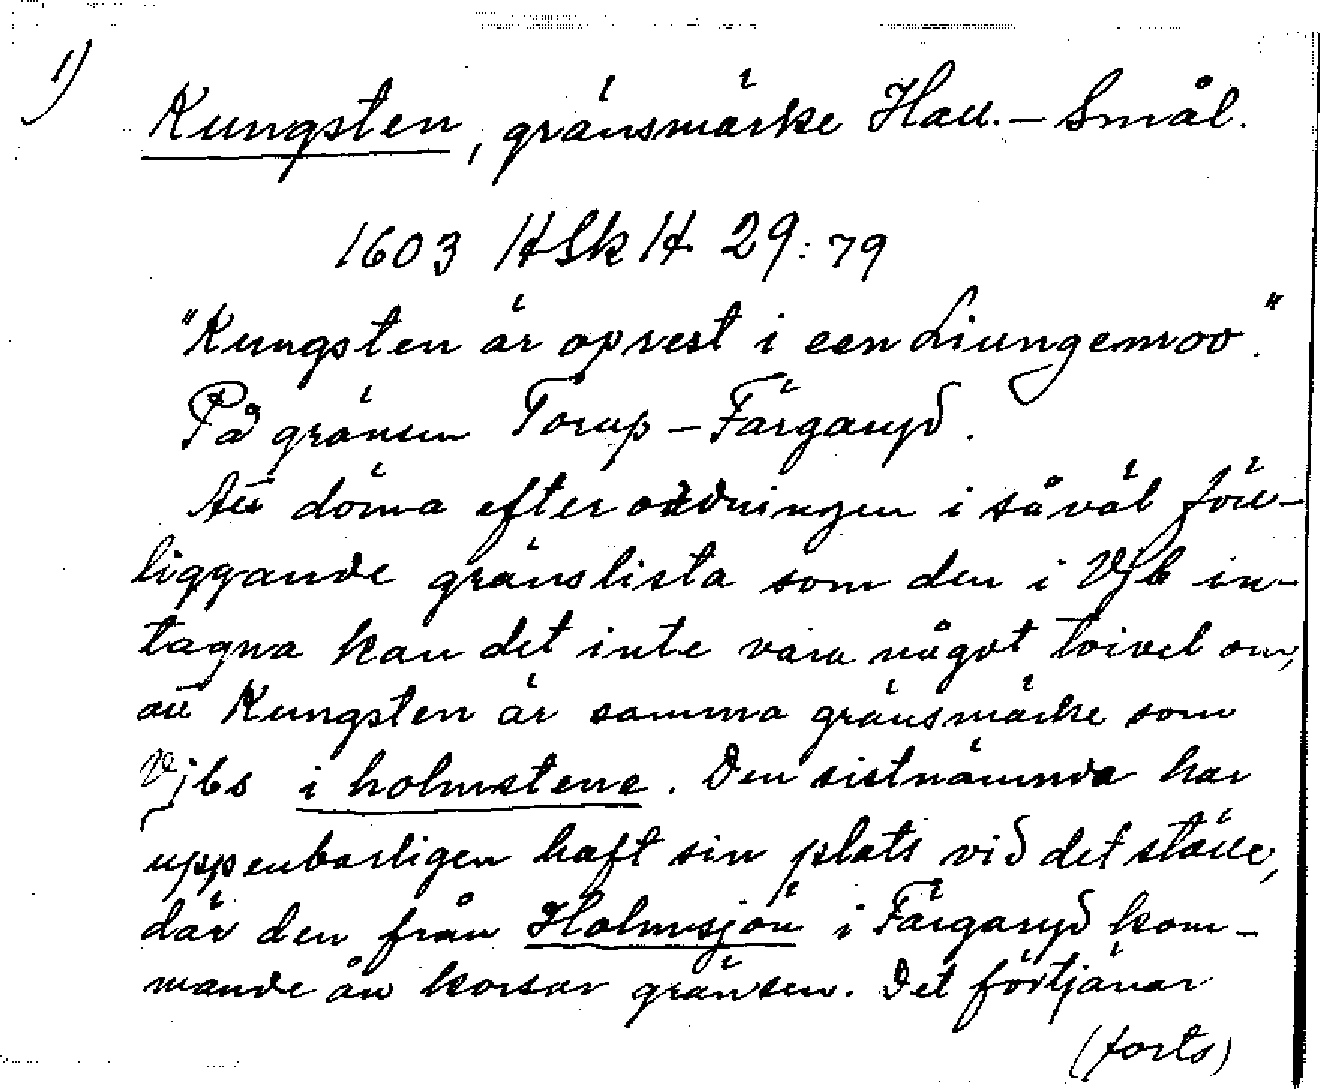 1)
Kungsten, gränsmärke Hall. – Smål.
1603 HSkH 29:79
"Kungsten är oprest i een Liungemoo".
På gränsen Torup – Färgaryd.
Att döma efter ordningen i såväl före-
liggande gränslista som den i Vjb in-
tagna kan det inte vara något tvivel om,
att Kungsten är samma gränsmärke som
Vjbs i holmstene. Den sistnämnda har
uppenbarligen haft sin plats vid det ställe,
där den från Holmsjön i Färgaryd kom-
mande ån korsar gränsen. Det förtjänar
(forts)